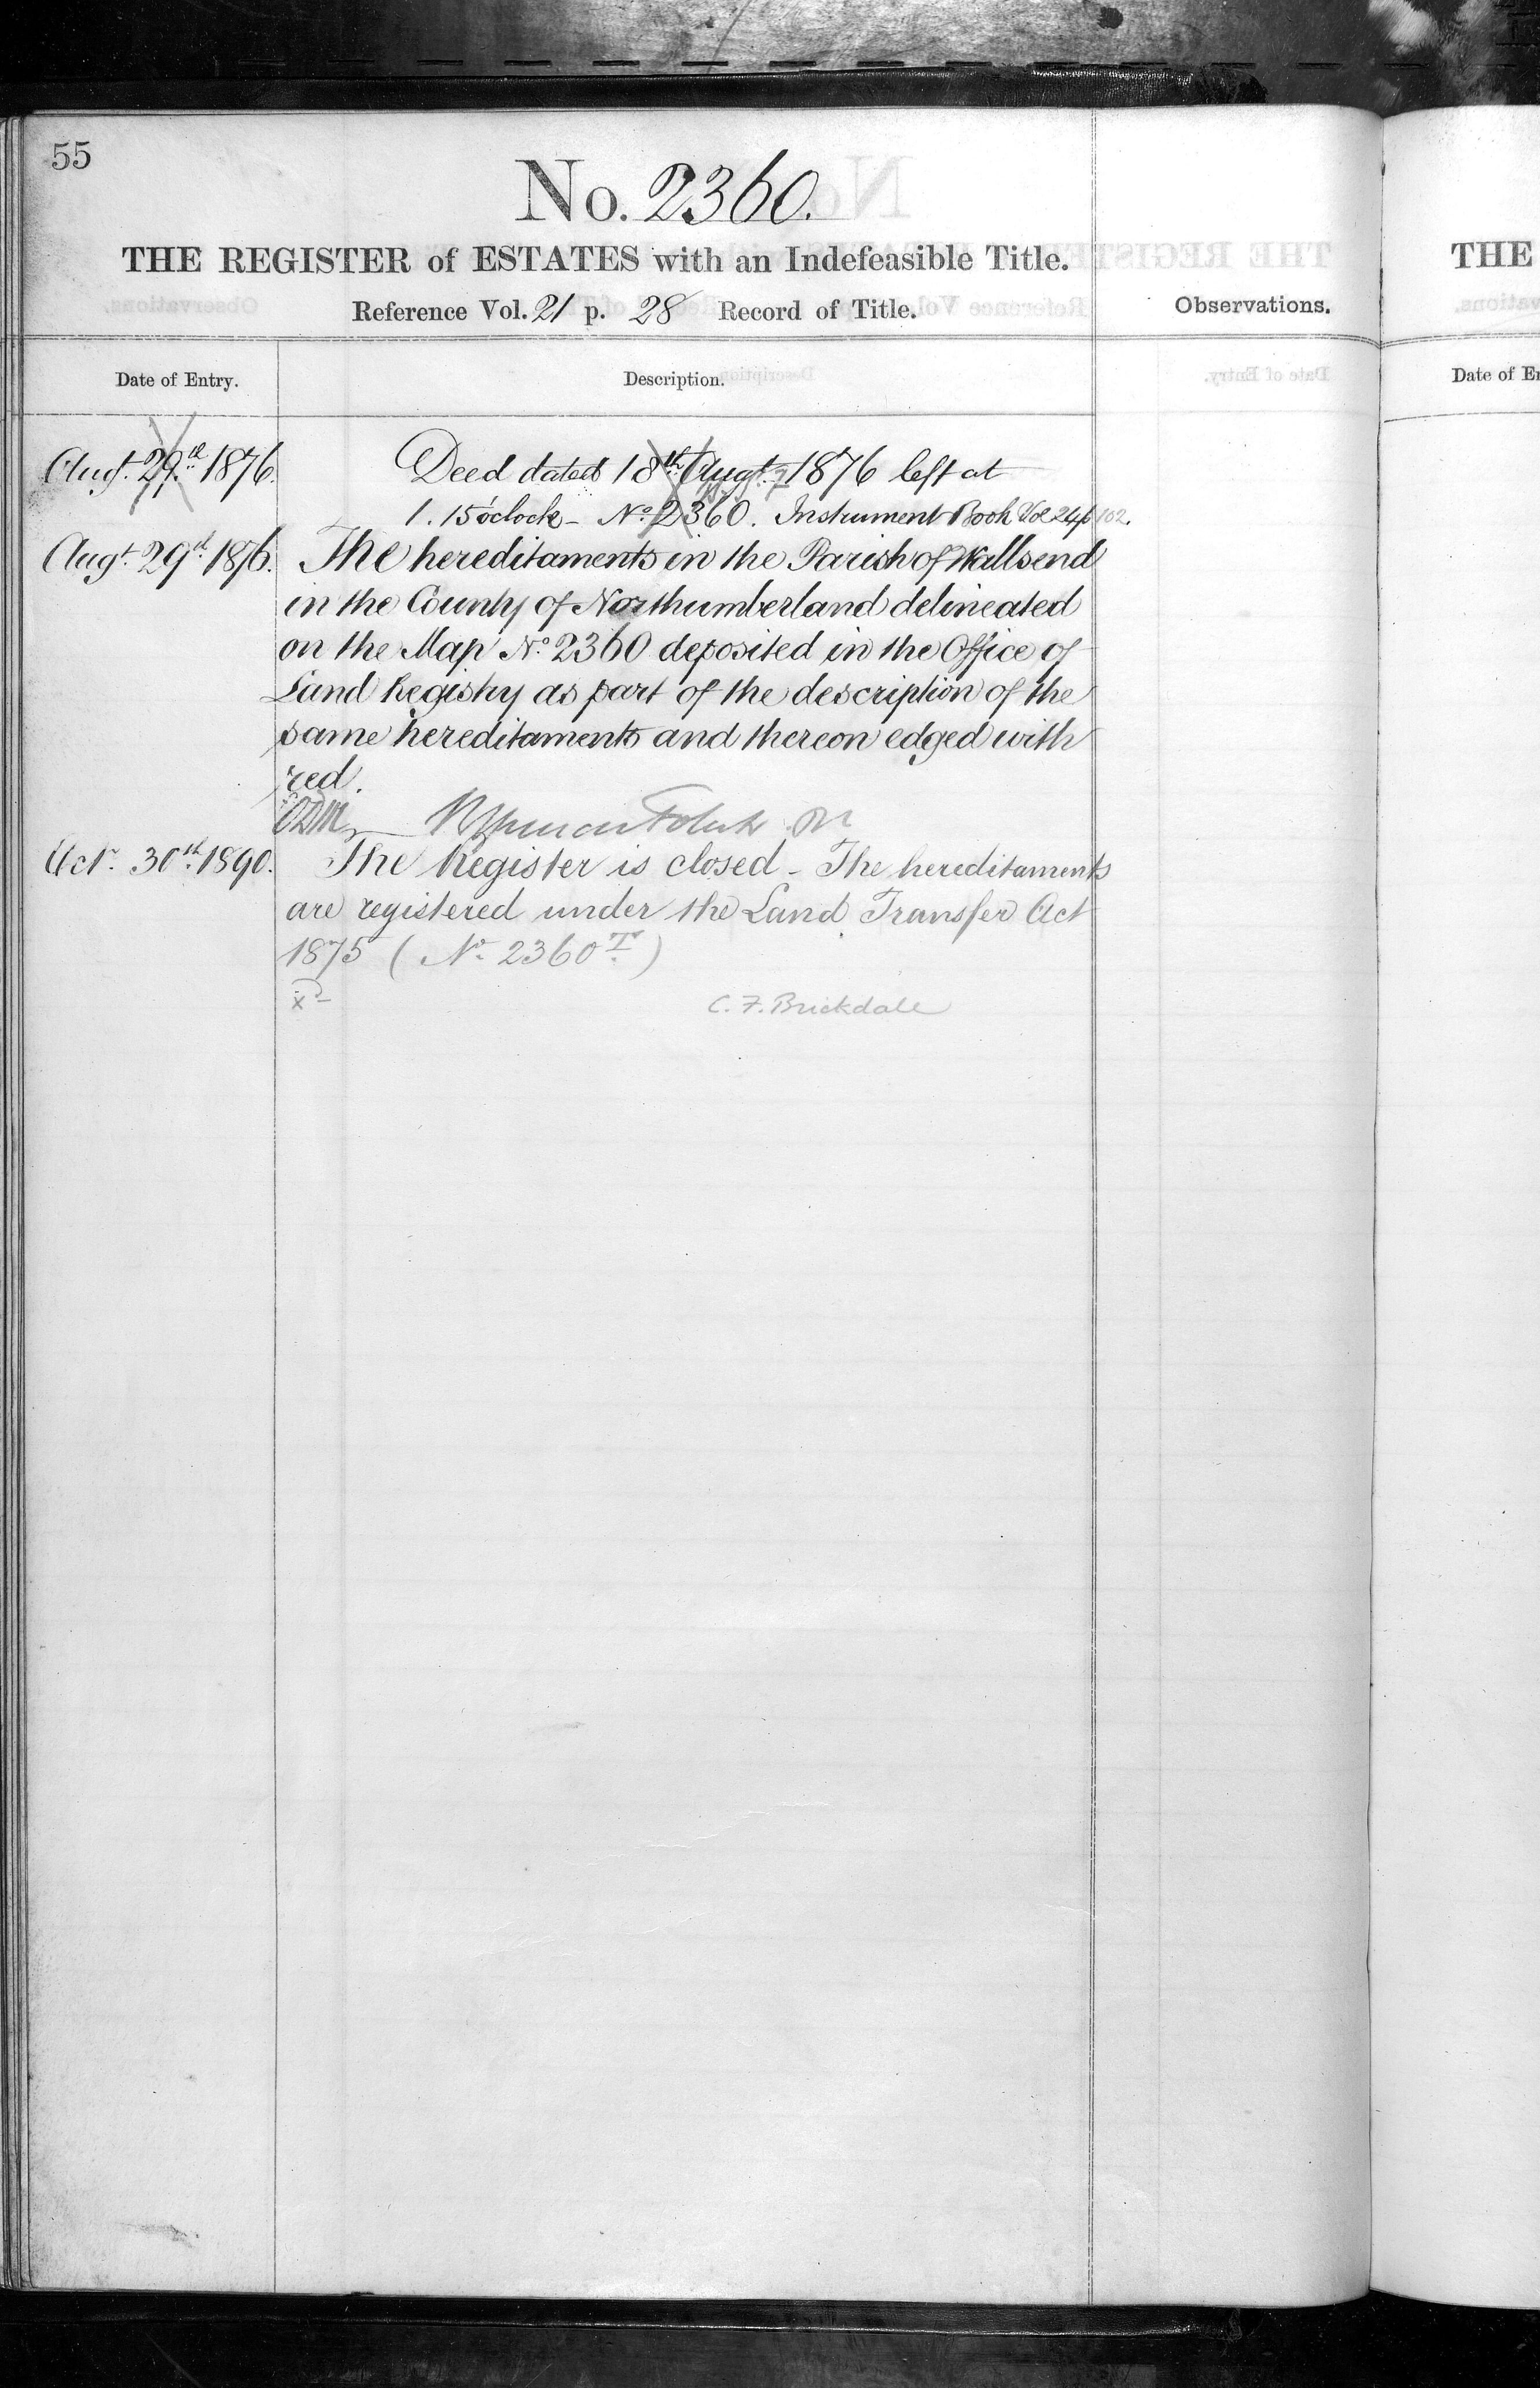 55
No. 2360.
THE REGISTER of ESTATES with an Indefeasible Title.
Reference Vol. 21 p. 28 Record of Title.
Observations.
Date of Entry.
Description.
Augt. 29th 1876.
Deed dated 18th Augt. 1876 left at
1.15 o'clock - No. 2360. Instrument Book Vol 24 p 102.
Augt. 29th 1876.
The hereditaments in the Parish of Wallsend
in the County of Northumberland delineated
on the Map No. 2360 deposited in the Office of
Land Registry as part of the description of the
same hereditaments and thereon edged with
red.
Octr. 30th 1890.
The Register is closed - The hereditaments
are registered under the Land Transfer Act
1875 (No. 2360T.)
C. F. Brickdale
THE
Date of En